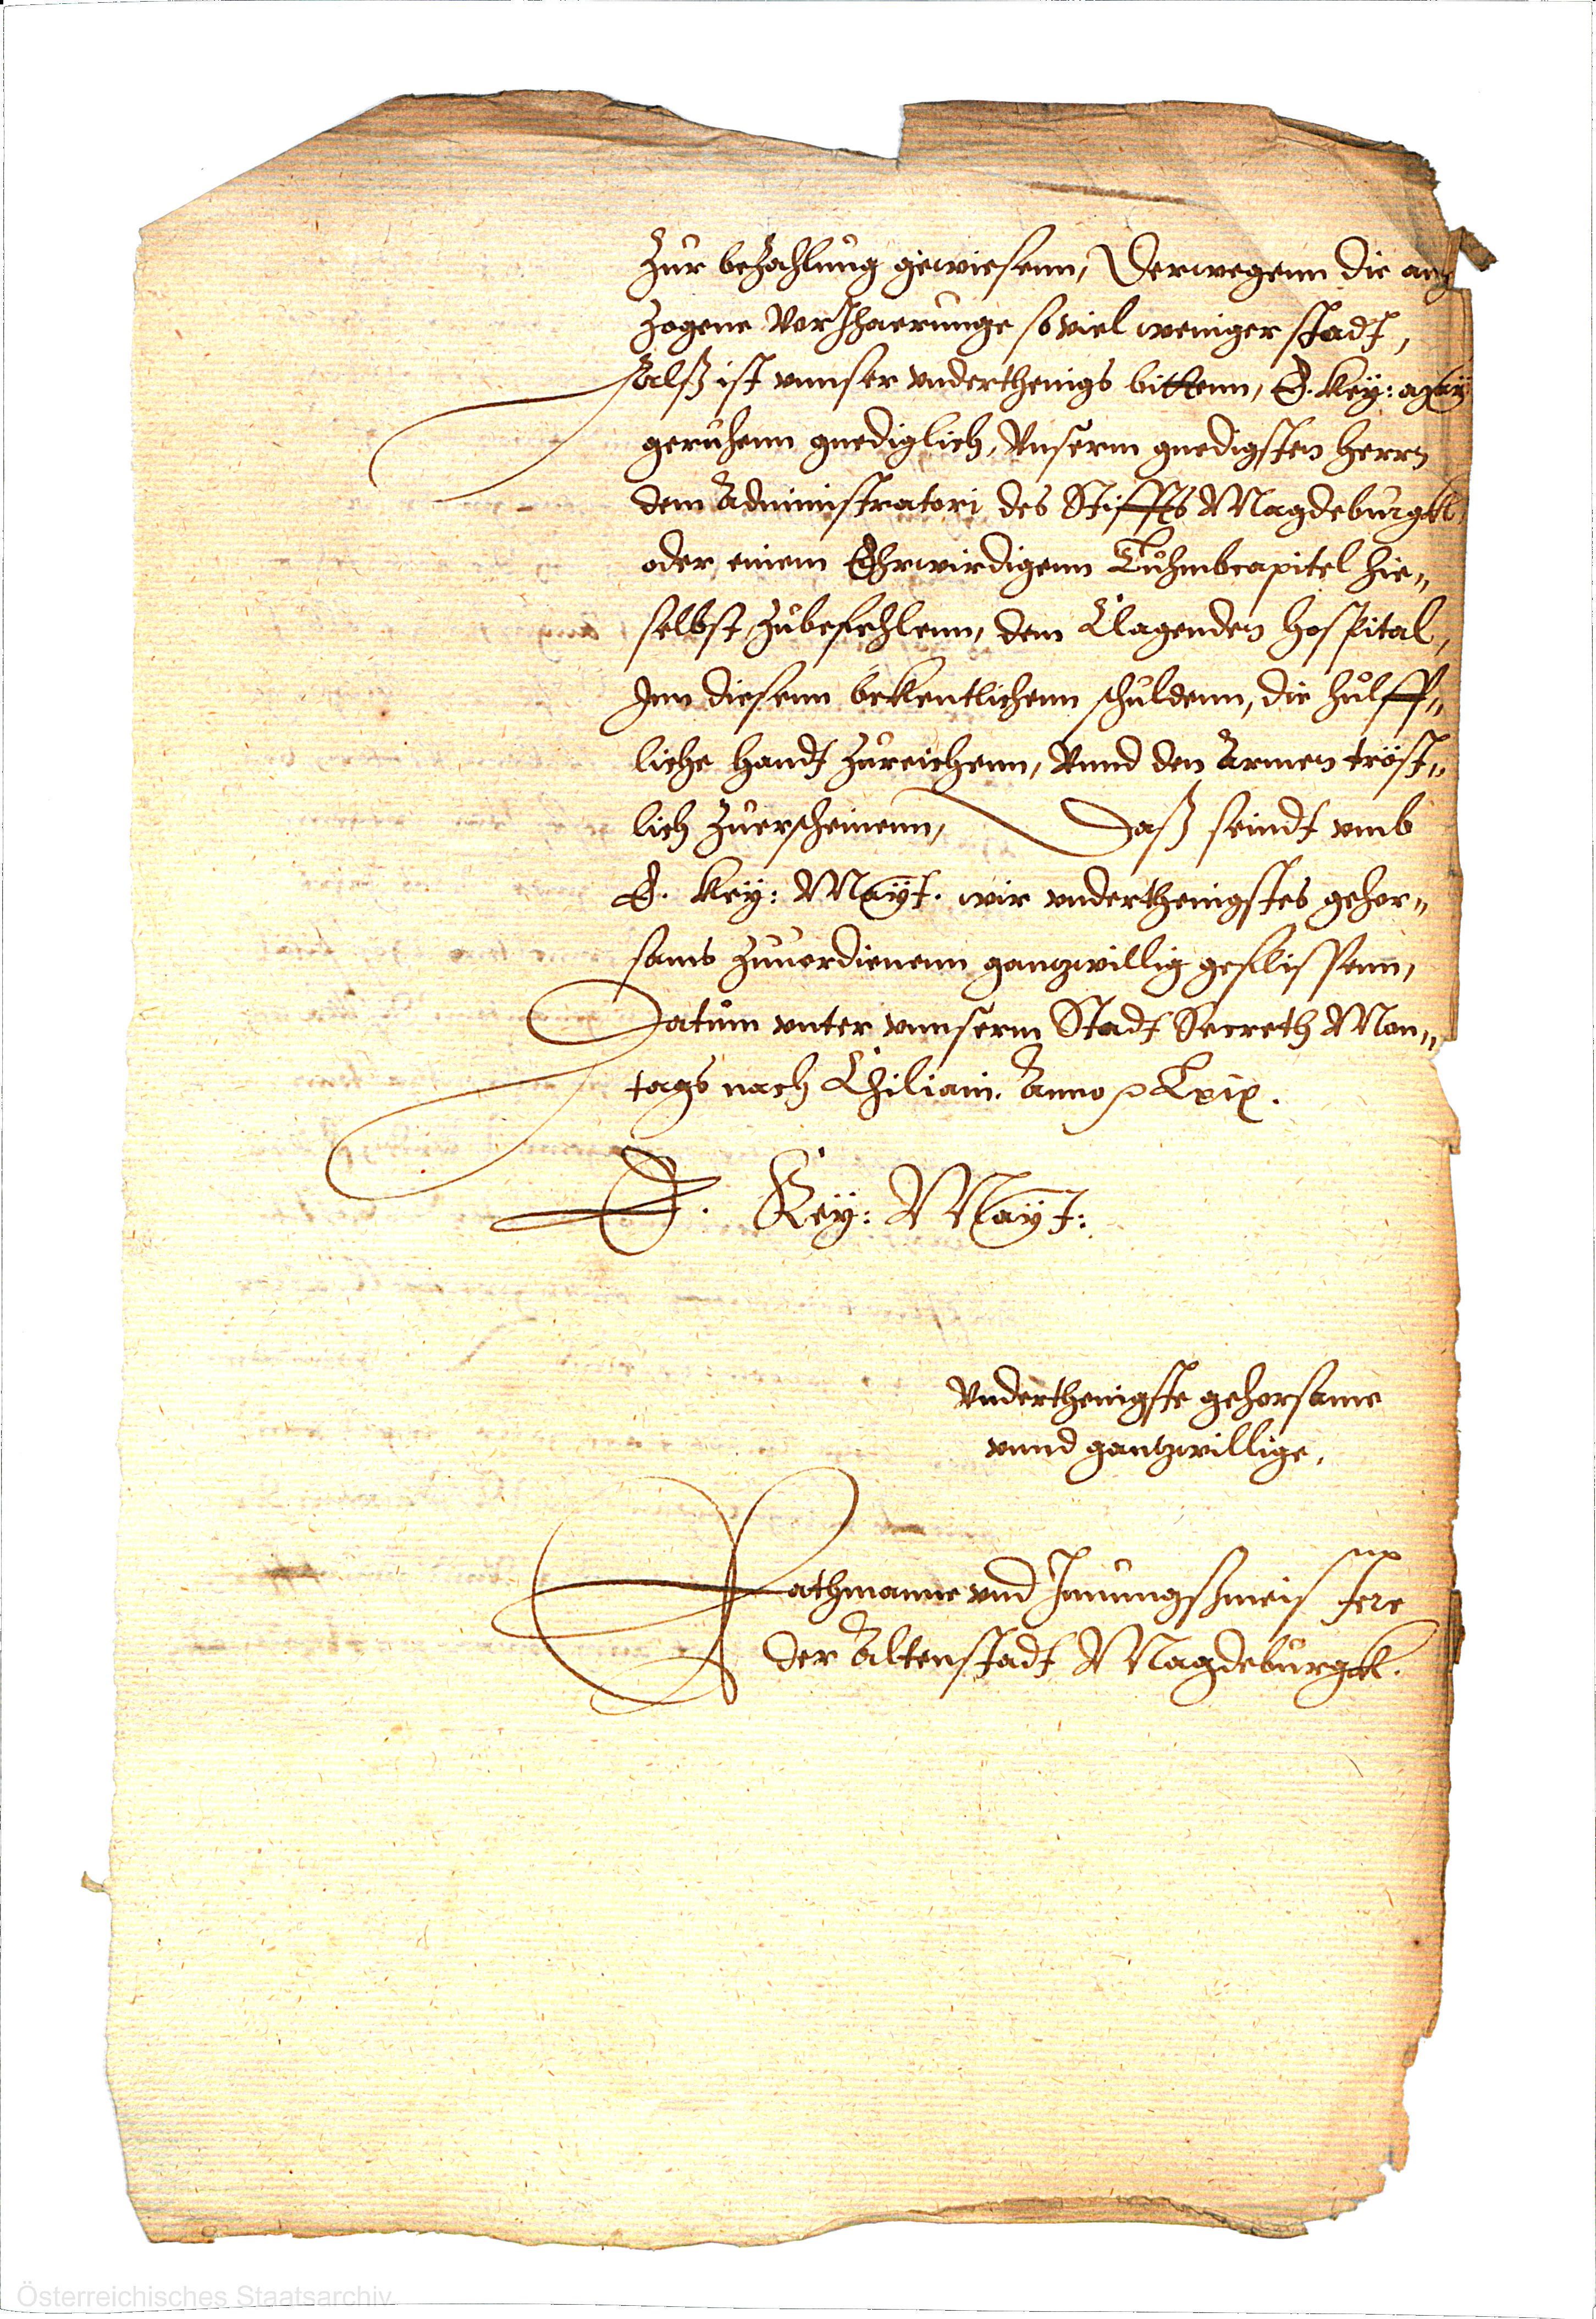 Zur bezahlung gewiesenn, Derwegenn die
zogene Verjhaerunge so viel weniger stadt,
Alß ist vnnser vnderthenigs bittenn, E. Key:
geruhenn gnediglich, Vnserm gnedigsten Herrn
dem Administratori des Stiffts Magdeburgk
oder einem Ehrwirdigenn Thuhmbcapitel hie„
selbst zubefehlenn, dem Clagenden Hospital,
Inn diesenn bekentlichenn schuldenn, die hulff„
liche handt zureichenn, Vnnd den Armen tröst„
lich zuerscheinenn, Daß seindt vmb
E. Key: Mayt. wir vnderthenigstes gehor„
sams zuuordienenn gantzwillig geflissenn,
Datum vnter vnnserm Stadt Secreth Mon„
tags nach Chiliani. Anno
E. Key: Mayt:
Vnderthenigste gehorsame
vnnd gantzwillige.
Rathmanne vnd Innungßmeistere
der Altenstadt Magdeburgk.
Österreichisches Staatsarchiv